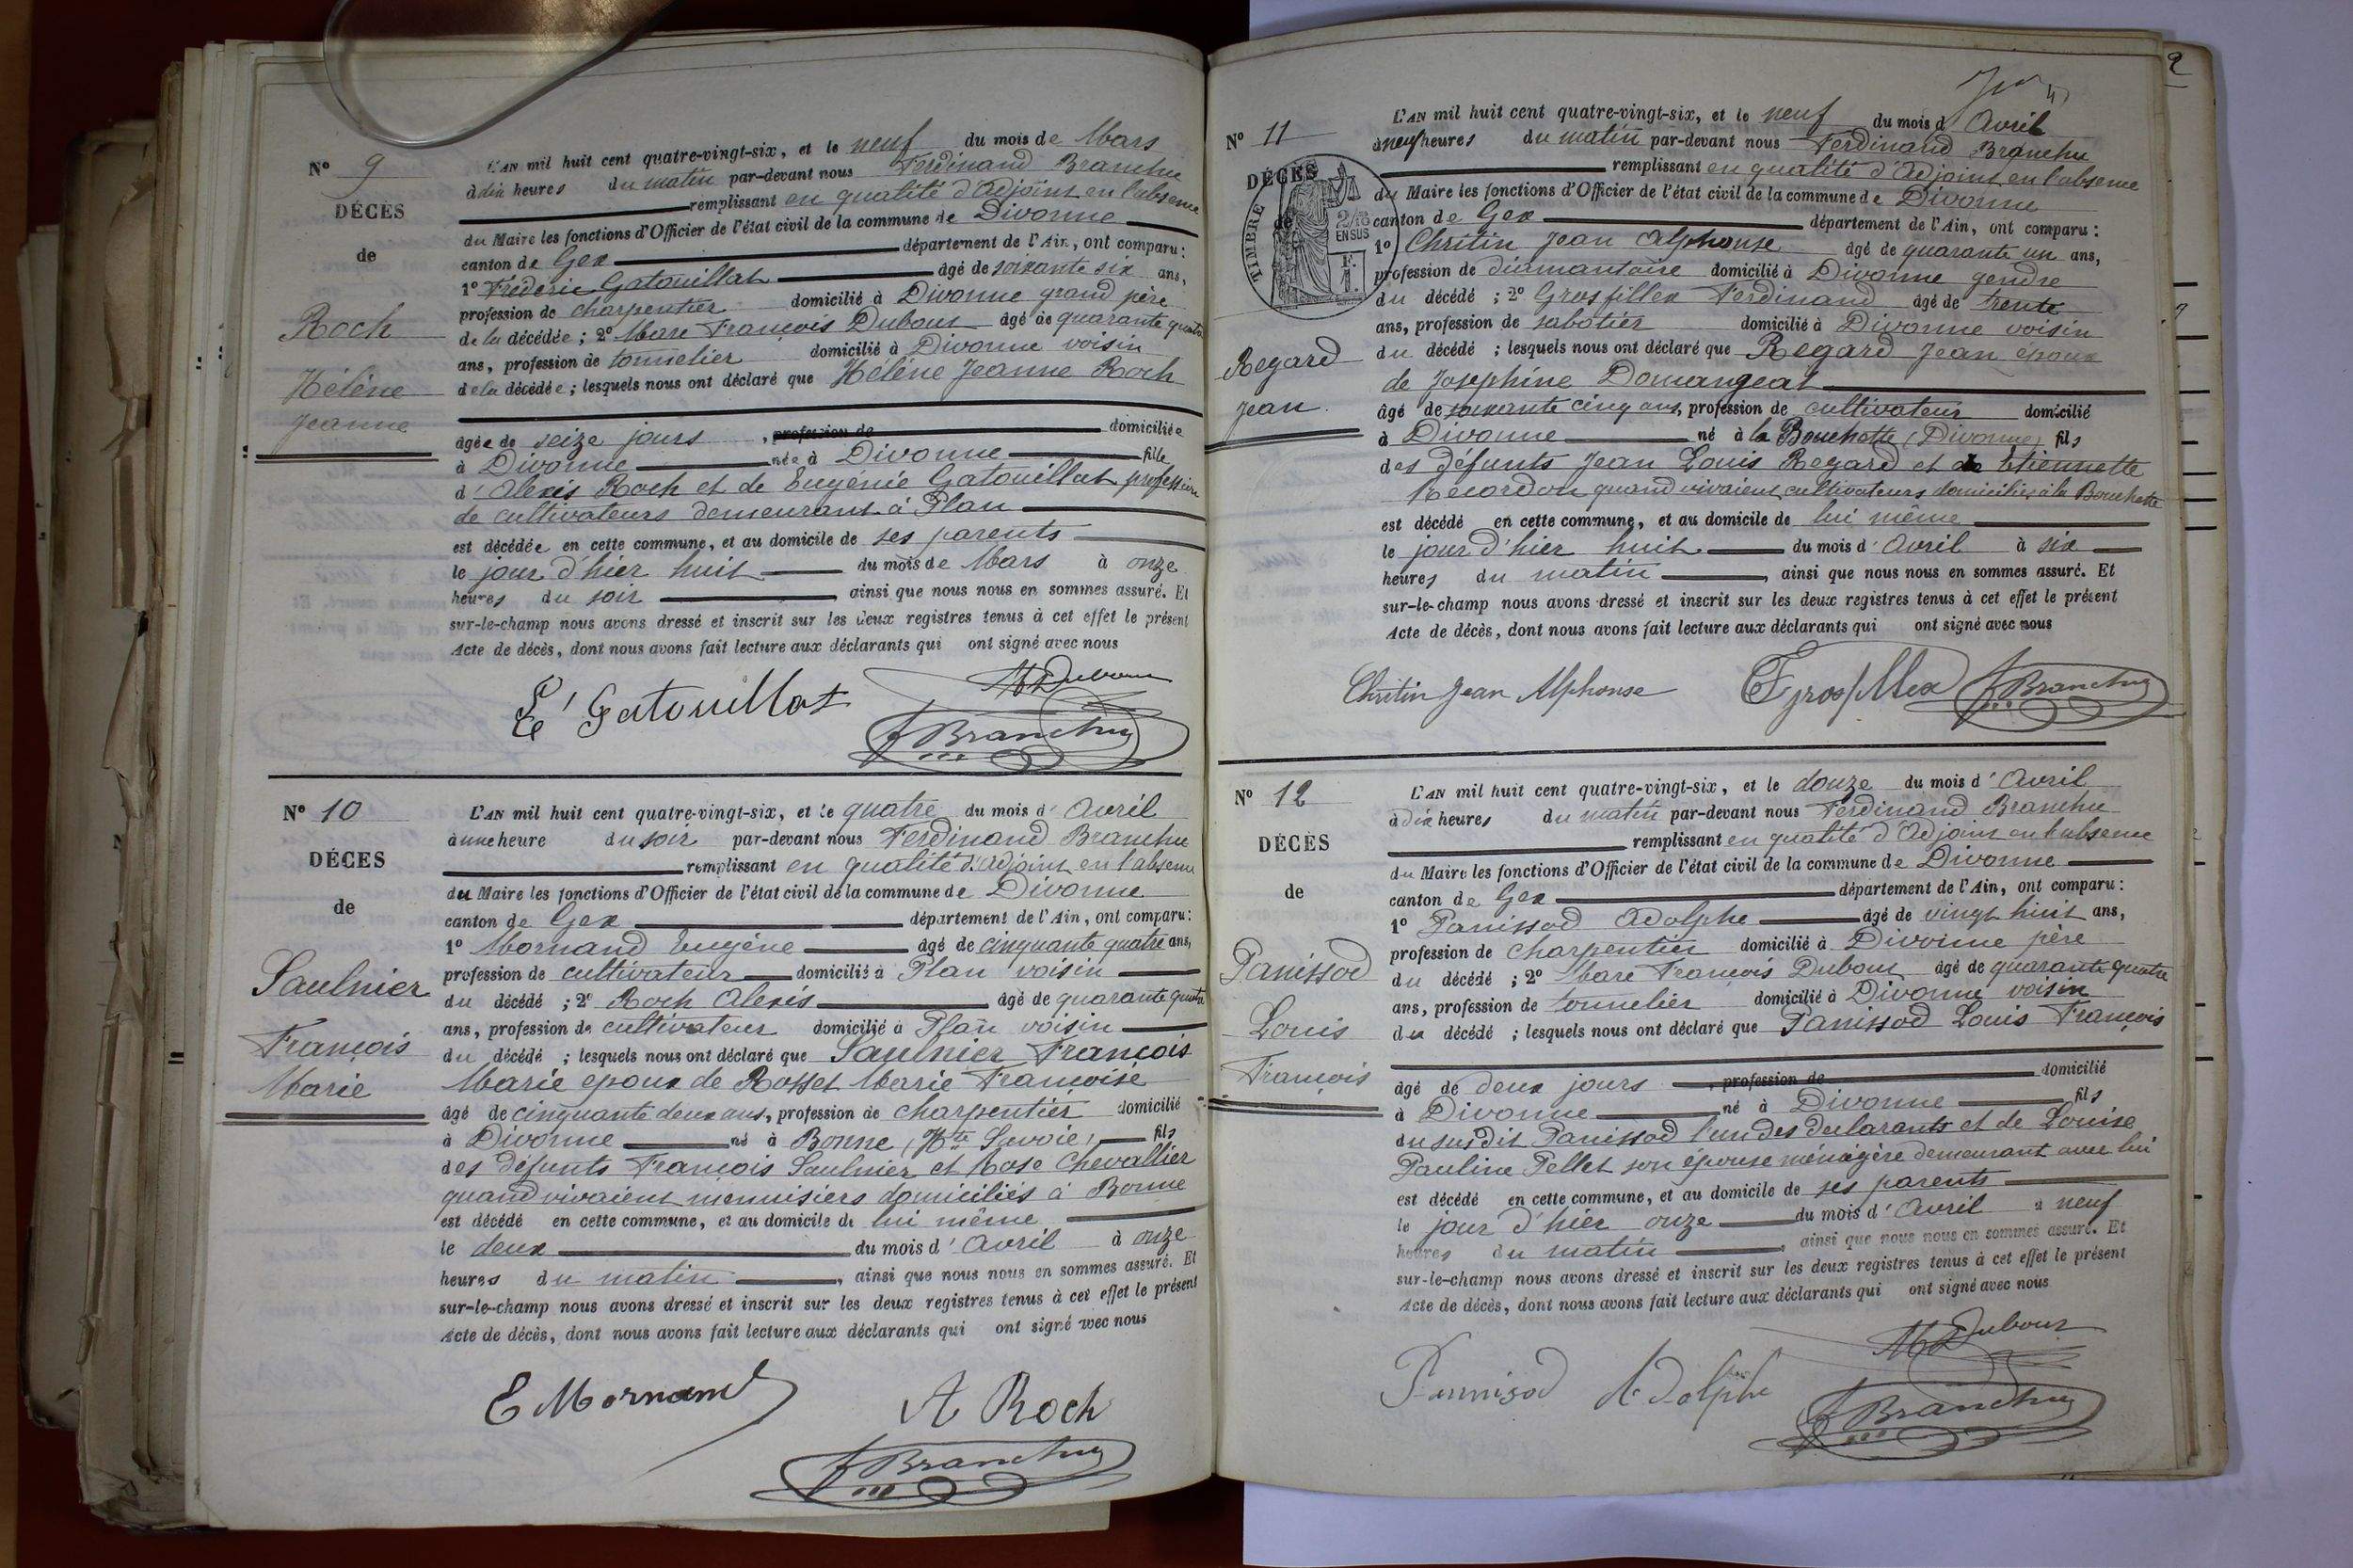 N° 9
DÉCÈS
de
Roch
Hélène
Jeanne
L'AN mil huit cent quatre-vingt-six, et le neuf du mois de Mars
à dix heures du matin par-devant nous Ferdinand Branchu
remplissant en qualité d'Adjoint en l'absence
du Maire les fonctions d'Officier de l'état civil de la commune de Divonne
canton de Gex département de l'Ain, ont comparu:
1° Fréderic Gatouillat âgé de soixante six ans,
profession de charpentier domicilié à Divonne grand père
de la décédée; 2° Marc François Dubout âgé de quarante quatre
ans, profession de tonnelier domicilié à Divonne voisin
de la décédée; lesquels nous ont déclaré que Hélène Jeanne Roch
âgée de seize jours, profession de domiciliée
à Divonne née à Divonne fille
d'Alexis Roch et de Eugénie Gatouillat profession
de cultivateurs demeurant à Plan
est décédée en cette commune, et au domicile de ses parents
le jour d'hier huit du mois de Mars à onze
heures du soir, ainsi que nous nous en sommes assuré. Et
sur-le-champ nous avons dressé et inscrit sur les deux registres tenus à cet effet le présent
Acte de décès, dont nous avons fait lecture aux déclarants qui ont signé avec nous
Gatouillat
Dubout
F Branchu
N° 10
DÉCÈS
de
Saulnier
François
Marie
L'AN mil huit cent quatre-vingt-six, et le quatre du mois d'Avril
à une heure du soir par-devant nous Ferdinand Branchu
remplissant en qualité d'Adjoint en l'absence
du Maire les fonctions d'Officier de l'état civil de la commune de Divonne
canton de Gex département de l'Ain, ont comparu:
1° Mornand Eugène âgé de cinquante quatre ans,
profession de cultivateur domicilié à Plan voisin
du décédé; 2° Roch Alexis âgé de quarante quatre
ans, profession de cultivateur domicilié à Plan voisin
du décédé; lesquels nous ont déclaré que Saulnier François
Marie epoux de Rosset Marie Françoise
âgé de cinquante deux ans, profession de charpentier domicilié
à Divonne né à Bonne (Hte Savoie) fils
des défunts François Saulnier et Rose Chevallier
quand vivaient menuisiers domiciliés à Bonne
est décédé en cette commune, et au domicile de lui même
le deux du mois d'Avril à onze
heures du matin, ainsi que nous nous en sommes assuré. Et
sur-le-champ nous avons dressé et inscrit sur les deux registres tenus à cet effet le présent
Acte de décès, dont nous avons fait lecture aux déclarants qui ont signé avec nous
E Mornand
A Roch
F Branchu
2
N° 11
DÉCÈS
de
TIMBRE
2/10
EN SUS
F.
1
Regard
Jean
L'AN mil huit cent quatre-vingt-six, et le neuf du mois d'Avril
à neuf heures du matin par-devant nous Ferdinand Branchu
remplissant en qualité d'Adjoint en l'absence
du Maire les fonctions d'Officier de l'état civil de la commune de Divonne
canton de Gex département de l'Ain, ont comparu:
1° Chritin Jean Alphonse âgé de quarante un ans,
profession de diamantaire domicilié à Divonne gendre
du décédé; 2° Grosfillex Ferdinand âgé de trente
ans, profession de sabotier domicilié à Divonne voisin
du décédé; lesquels nous ont déclaré que Regard Jean époux
de Josephine Domangeat
âgé de soixante cinq ans, profession de cultivateur domicilié
à Divonne né à la Bouchatte (Divonne) fils
des défunts Jean Louis Regard et de Etiennette
Recordon quand vivaient cultivateurs domiciliés à la Bouchatte
est décédé en cette commune, et au domicile de lui même
le jour d'hier huit du mois d'Avril à six
heures du matin, ainsi que nous nous en sommes assuré. Et
sur-le-champ nous avons dressé et inscrit sur les deux registres tenus à cet effet le présent
Acte de décès, dont nous avons fait lecture aux déclarants qui ont signé avec nous
Chritin Jean Alphonse
F Grosfillex
F Branchu
N° 12
DÉCÈS
de
Panissod
Louis
François
L'AN mil huit cent quatre-vingt-six, et le douze du mois d'Avril
à dix heures du matin par-devant nous Ferdinand Branchu
remplissant en qualité d'Adjoint en l'absence
du Maire les fonctions d'Officier de l'état civil de la commune de Divonne
canton de Gex département de l'Ain, ont comparu:
1° Panissod Adolphe âgé de vingt huit ans,
profession de charpentier domicilié à Divonne père
du décédé; 2° Marc François Dubout âgé de quarante quatre
ans, profession de tonnelier domicilié à Divonne voisin
du décédé; lesquels nous ont déclaré que Panissod Louis François
âgé de deux jours, profession de domicilié
à Divonne né à Divonne fils
du susdit Panissod l'un des declarants et de Louise
Pauline Pellet son épouse ménagère demeurant avec lui
est décédé en cette commune, et au domicile de ses parents
le jour d'hier onze du mois d'Avril à neuf
heures du matin, ainsi que nous nous en sommes assuré. Et
sur-le-champ nous avons dressé et inscrit sur les deux registres tenus à cet effet le présent
Acte de décès, dont nous avons fait lecture aux déclarants qui ont signé avec nous
Dubout
Pannisod Adolphe
F Branchu